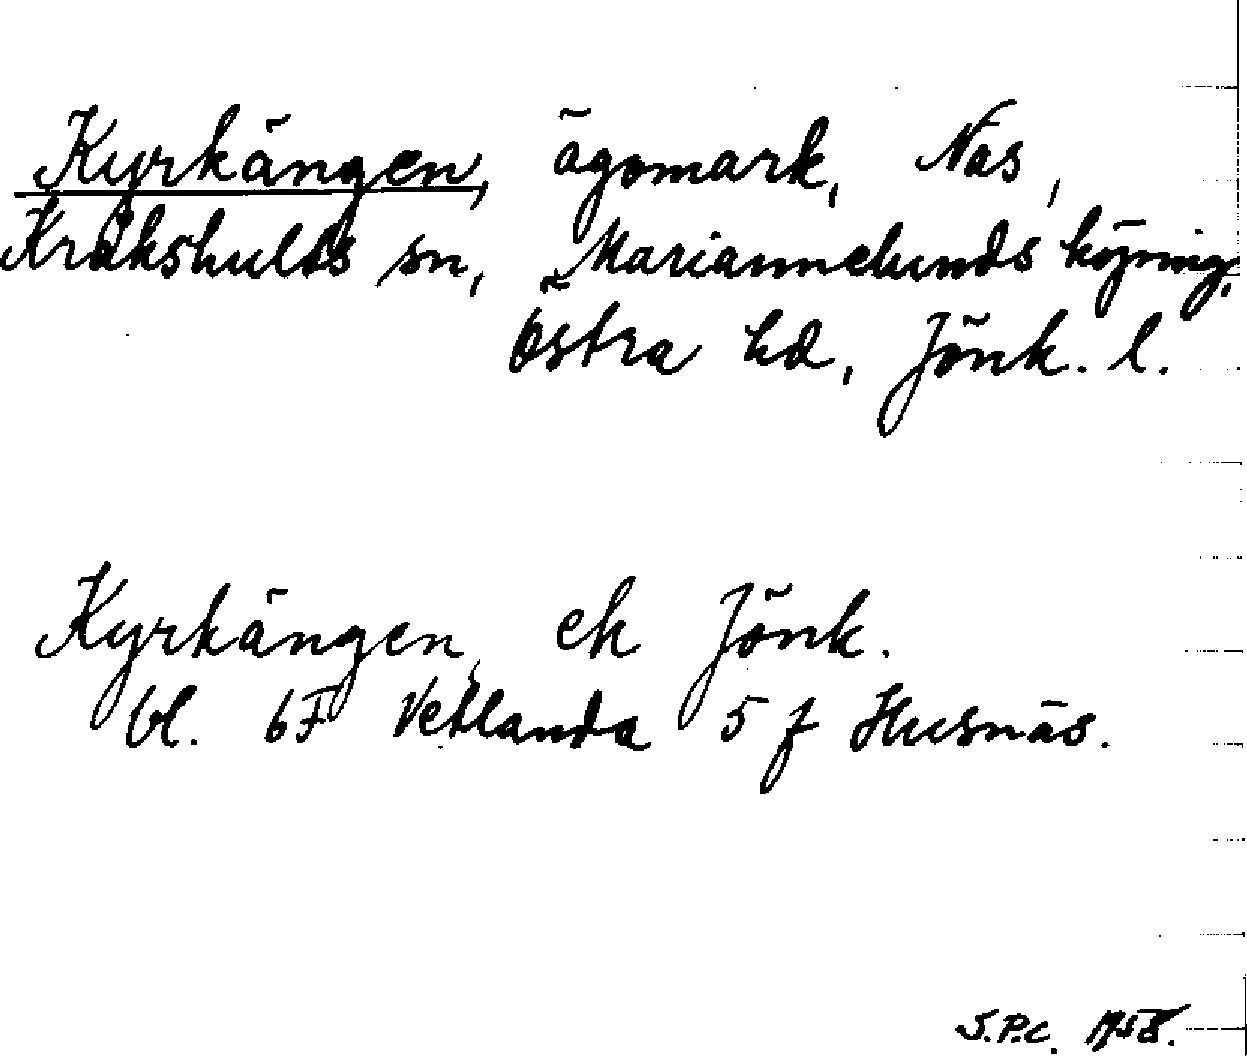 Kyrkängen, ägomark, Näs,
Kråkshults sn, Mariannelunds köping,
Östra hd, Jönk. l.
Kyrkängen, ek Jönk.
bl. 6F Vetlanda 5 f Husnäs.
S.P.C. 1958.